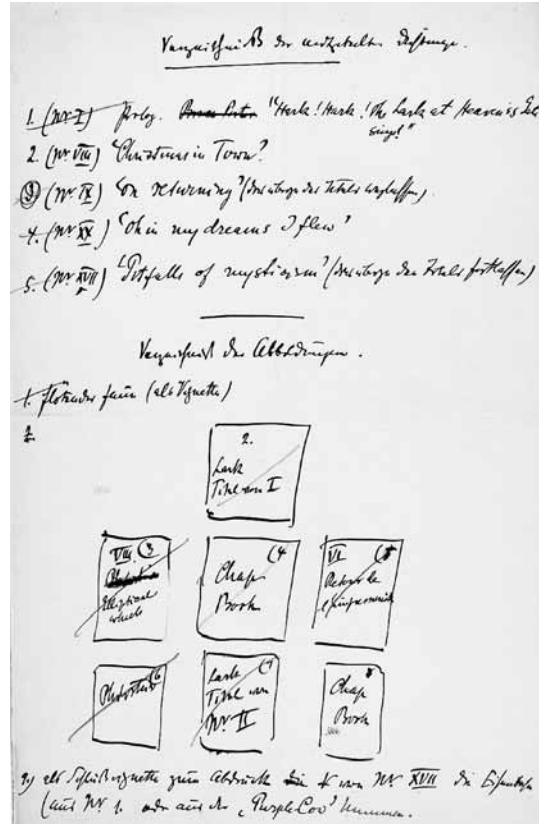 Verzeichniß der mitgeteilten Dichtungen.
1. (Nr I) Prolog. "Hark! Hark! the Lark at Heaven's Gate
sings!"
2. (Nr VIII) "Christmas in Town"
3) (Nr IX) "on returning" (das übrige des Titels weglassen).
4. (Nr XX) "Oh in my dreams I flew"
5. (Nr XVII) "Pitfalls of mysticism" (das übrige des Titels fortlassen)
Verzeichniß der Abbildungen.
1. flötender Faun (als Vignette)
2.
2.
Lark
Titel von I
VIII (3
Elliptical
wheels
(4
Chap
Book
VI (5
(6
(7
Lark
Titel von
Nr. II
8
Chap
Book
9) als Schlußvignette zum Abdruck von Nr XVII die Eisenbahn
(aus Nr 1. oder aus der "Purple Cow" Nummer.